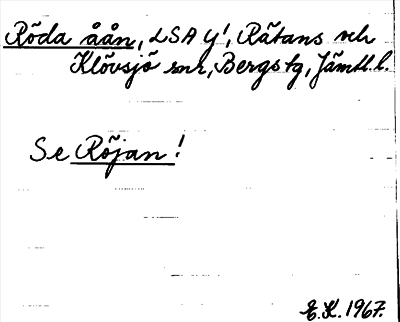 Röda åån, LSA y!, Rätans och
Klövsjö snr, Bergs tg, Jämtl. l.
Se Röjan!
E.K. 1967.